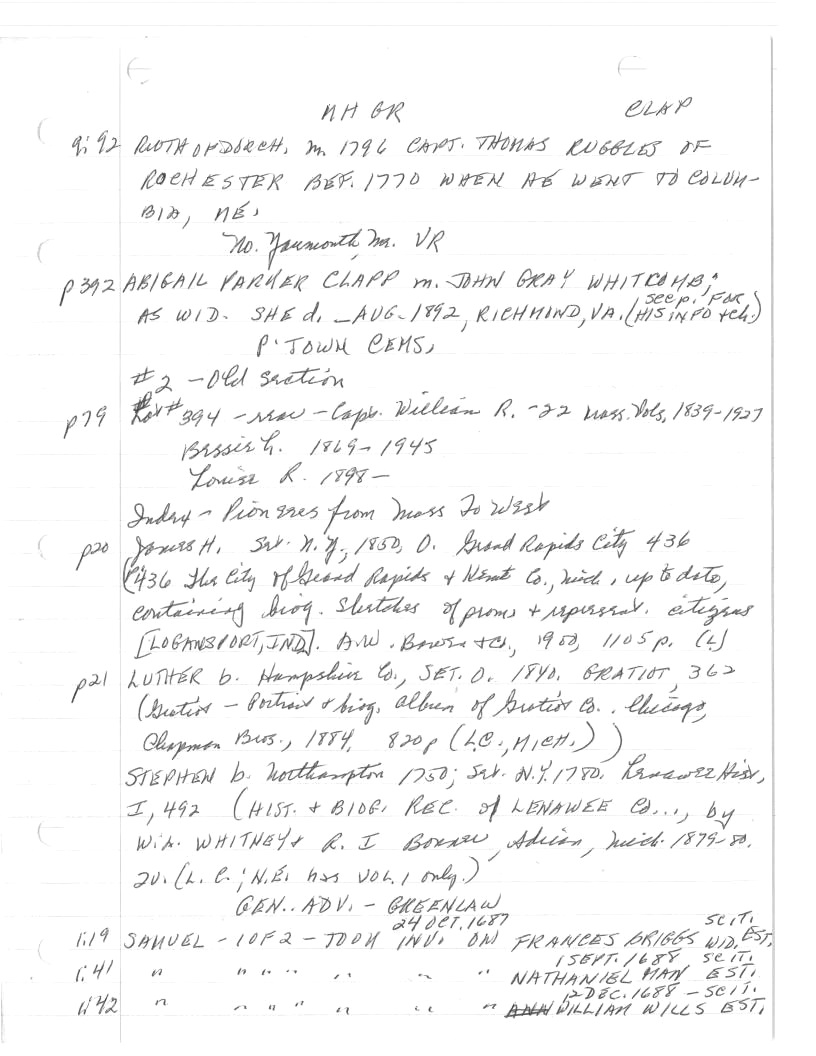 NH GR CLAP
9:92 RUTH OF DORCH. m. 1796 CAPT. THOMAS RUGGLES OF
ROCHESTER BEF. 1770 WHEN HE WENT TO COLUM-
BIA, ME.
No. Yarmouth, Me. VR
p392 ABIGAIL PARKER CLAPP m. JOHN GRAY WHITCOMB,
AS WID. SHE d. _AUG. 1892, RICHMOND, VA. (see p. FOR HIS INFO + ch.)
P'TOWN CEMS.
#2 - Old Section
p79 Lot #394 - rear - Capt. William R. - 22 Mass. Vols, 1839-1927
Bessie L. 1869-1945
Louise R. 1898-
Index - Pioneers from Mass To West
p20 James H. Set. N.Y., 1850, O. Grand Rapids City 436
(436 The City of Grand Rapids & Kent Co., Mich., up to date,
containing biog. sketches of prom. + represent. citizens
[LOGANSPORT, IND]. A.W. Bowen + Co., 1900, 1105 p. (L)
p21 LUTHER b. Hampshire Co., SET. O. 1840. GRATIOT, 362
(Gratiot - Portrait & biog. album of Gratiot Co.. Chicago,
Chapman Bros., 1884, 820p (L.C., MICH.))
STEPHEN b. Northampton 1750; Set. N.Y. 1780. Lenawee Hist,
I, 492 (HIST. + BIOG. REC. of LENAWEE Co..., by
W.A. WHITNEY & R. I Bonner, Adrian, Mich. 1879-80.
2v. (L.C.; N.E. has VOL. 1 only.)
GEN. ADV. - GREENLAW
24 OCT. 1687 SCIT.
1:19 SAMUEL - 1 OF 2 - TOOK INV. ON FRANCES BRIGGS WID. EST.
1 SEPT. 1688, SCIT.
1:41 " " " " " " " NATHANIEL MAN EST.
12 DEC. 1688 - SCIT.
1:42 " " " " " " " ANN WILLIAM WILLS EST.